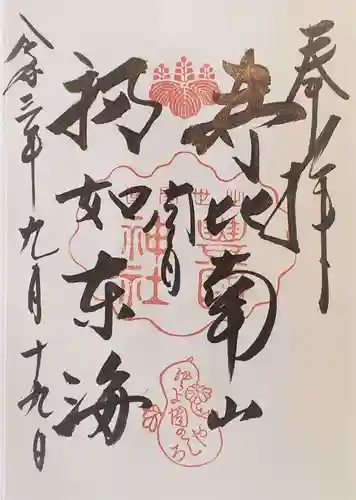 奉拝
寿比南山
福如东海
豐國
神社
令和二年九月十九日